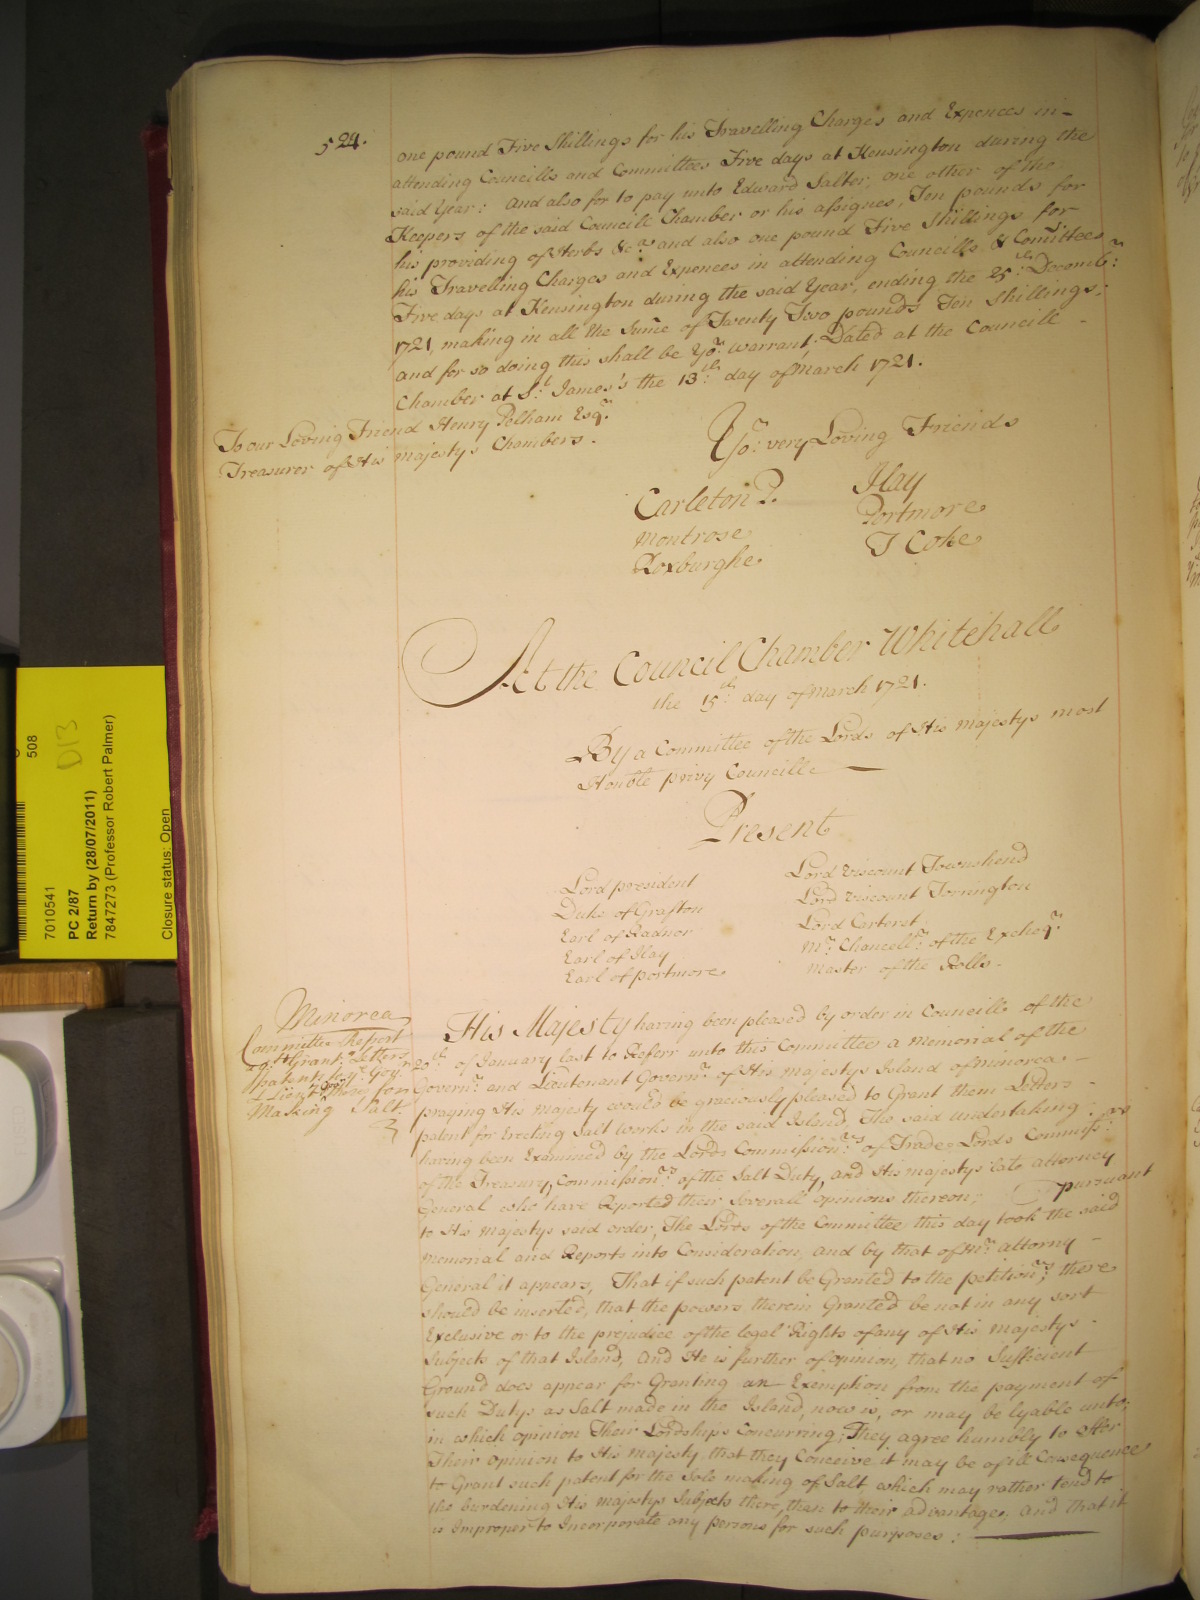 524.
one pound Five Shillings for his Travelling Charges and Expences in
attending Councills and Committees Five days at Kensington during the
said Year: And also for to pay unto Edward Salter, one other of the
Keepers of the said Councill Chamber or his assignes, Ten pounds for
his providing of Herbs &ca. and also one pound Five Shillings for
his Travelling Charges and Expences in attending Councills & Comittees
Five days at Kensington during the said Year, ending the 25th: Decembr:
1721, making in all the Sume of Twenty Two pounds Ten Shillings;
and for so doing this shall be Yor: warrant; Dated at the Councill
Chamber at St: James's the 13th: day of March 1721.
To our Loving Friend Henry Pelham Esqr.
Treasurer of His Majestys Chambers.
Yor: very Loving Friends
Carleton P.
Montrose
Roxburghe
Ilay
Portmore
T Coke
At the Council Chamber Whitehall
the 15th: day of March 1721.
By a Committee of the Lords of His Majestys most
Honoble privy Councill
Present
Lord president
Duke of Grafton
Earl of Radnor
Earl of Ilay
Earl of portmore
Lord Viscount Townshend
Lord Viscount Torrington
Lord Carteret
Mr. Chancellr: of the Excheqr.
Master of the Rolls.
Minorca
Committee Report
Grant: Letters
patents to ye Govr.
& Lieut Govr: for
Making Salt.
His Majesty having been pleased by order in Councill of the
20th of January last to Referr unto this Committee a Memorial of the
Governr. and Lieutenant Governr. of His Majestys Island of Minorca
praying His Majesty would be graciously pleased to Grant them Letters
patent for Erecting Salt Works in the said Island, The said undertaking
having been Examined by the Lords Commissionrs. of Trade, Lords Commissrs:
of the Treasury, Commissionrs. of the Salt Duty, and His Majestys late Attorney
General who have Reported their Severall opinions thereon; pursuant
to His Majestys said order, The Lords of the Committee this day took the said
Memorial and Reports into Consideration, and by that of Mr. Attorny
General it appears, That if such patent be Granted to the petitionrs; there
should be inserted, that the powers therein Granted be not in any sort
Exclusive or to the prejudice of the legal Rights of any of His Majestys
Subjects of that Island, And He is further of opinion, that no Sufficient
Ground does appear for Granting an Exemption from the payment of
such Dutys as Salt made in the Island, now is, or may be lyable unto;
in which opinion Their Lordships Concurring; They agree humbly to offer
Their opinion to His Majesty that they Conceive it may be of ill Consequence
to Grant such patent for the Sole making of Salt which may rather tend to
the burdening His Majestys Subjects there, then to their advantage, And that it
is Improper to Incorporate any persons for such purposes:
508
D13
7010541
PC 2/87
Return by (28/07/2011)
7847273 (Professor Robert Palmer)
Closure status: Open